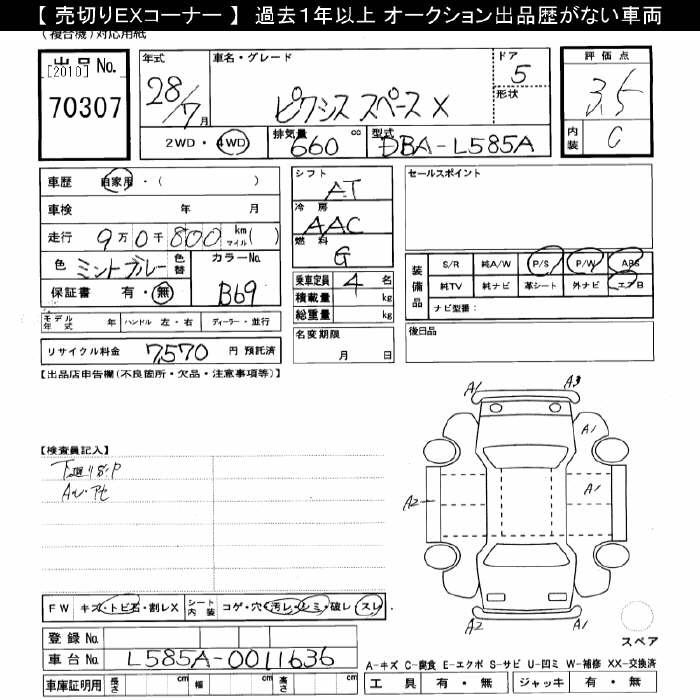 【 売切りEXコーナー 】 過去1年以上 オークション出品歴がない車両
(複合機)対応用紙
出品 No.
[2010]
70307
年式
28/7月
車名・グレード
ピクシス スペース X
ドア
5
形状
2WD・4WD
排気量
660 cc
型式
DBA-L585A
評価点
3.5
内装
C
車歴 自家用・( )
車検 年 月
走行 9万0千800 km マイル( )
色 ミントブルー
色替
カラーNo.
B69
保証書 有・無
モデル年式 年 ハンドル 左・右 ディーラー・並行
リサイクル料金 7,570 円 預託済
シフト
AT
冷房
AAC
燃料
G
乗車定員 4 名
積載量 kg
総重量 kg
名変期限
月 日
セールスポイント
装備品
S/R 純A/W P/S P/W ABS
純TV 純ナビ 革シート 外ナビ エアB
ナビ型番:
後日品
【出品店申告欄(不良箇所・欠品・注意事項等)】
【検査員記入】
A1
A3
A1
A2
A1
A2
A1
FW キズ・トビ石・割レX
シート内装 コゲ・穴・汚レ・シミ・破レ・スレ
登録 No.
車台 No. L585A-0011636
車庫証明用 長さ cm 幅 cm 高さ cm
スペア
A-キズ C-腐食 E-エクボ S-サビ U-凹ミ W-補修 XX-交換済
工具 有・無 ジャッキ 有・無